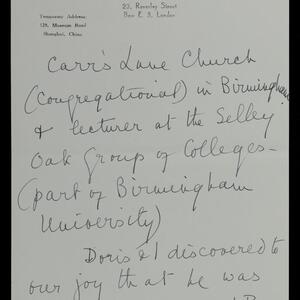 Temporary Address:
128, Museum Road
Shanghai, China
23, Reverley Street
Bow E. 3. London
Carr's Lane Church
(Congregational) in Birmingham
& lecturer at the Selley
Oak Group of Colleges -
(part of Birmingham
University)
Doris & I discovered to
our joy that he was